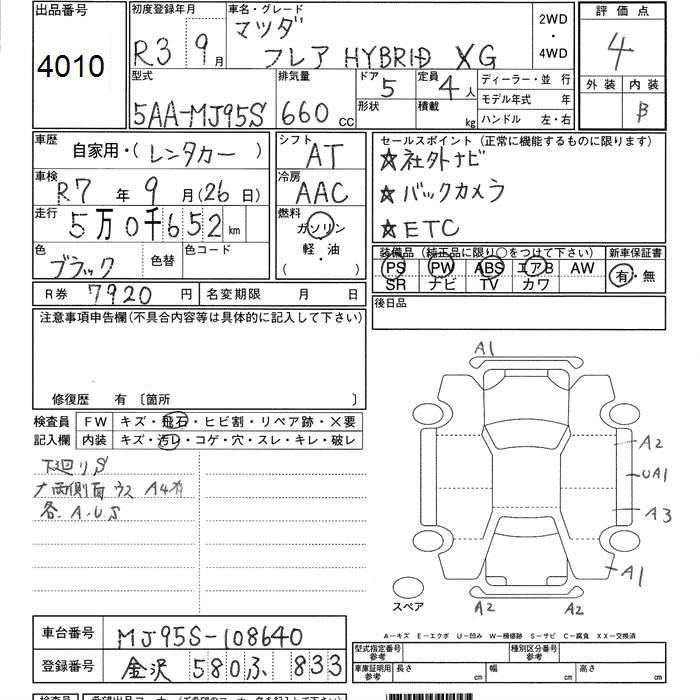 出品番号 初度登録年月 車名・グレード 2WD・4WD 評価点
4010 R3 9月 マツダ フレア HYBRID XG 4
型式 排気量 ドア 定員 ディーラー・並 行 外装 内装
5AA-MJ95S 660cc 5 4人 モデル年式 年 B
形状 積載 kg ハンドル 左・右
車歴 自家用・(レンタカー) シフト AT セールスポイント (正常に機能するものに限ります)
車検 R7年 9月(26日) 冷房 AAC ☆社外ナビ
☆バックカメラ
走行 5万0千652km 燃料 ガソリン ☆ETC
軽・油
( )
色 ブラック 色替 色コード 装備品 (純正品に限り○をつけて下さい) 新車保証書
PS PW ABS エアB AW 有・無
SR ナビ TV カワ
R券 7920円 名変期限 月 日 後日品
注意事項申告欄(不具合内容等は具体的に記入して下さい)
修復歴 有〔箇所 〕
検査員 FW キズ・飛石・ヒビ割・リペア跡・×要
記入欄 内装 キズ・汚レ・コゲ・穴・スレ・キレ・破レ
下廻りS
両側面ウス A4有
各 A.U.S
A1
A2
UA1
A3
A1
スペア A2 A2
車台番号 MJ95S-108640
登録番号 金沢 580 ふ 833
A−キズ E−エクボ U−凹み W−補修跡 S−サビ C−腐食 XX−交換済
型式指定番号 参考 種別区分番号 参考
車庫証明用 参考 長さ cm 幅 cm 高さ cm
検査員 希望出品コーナー